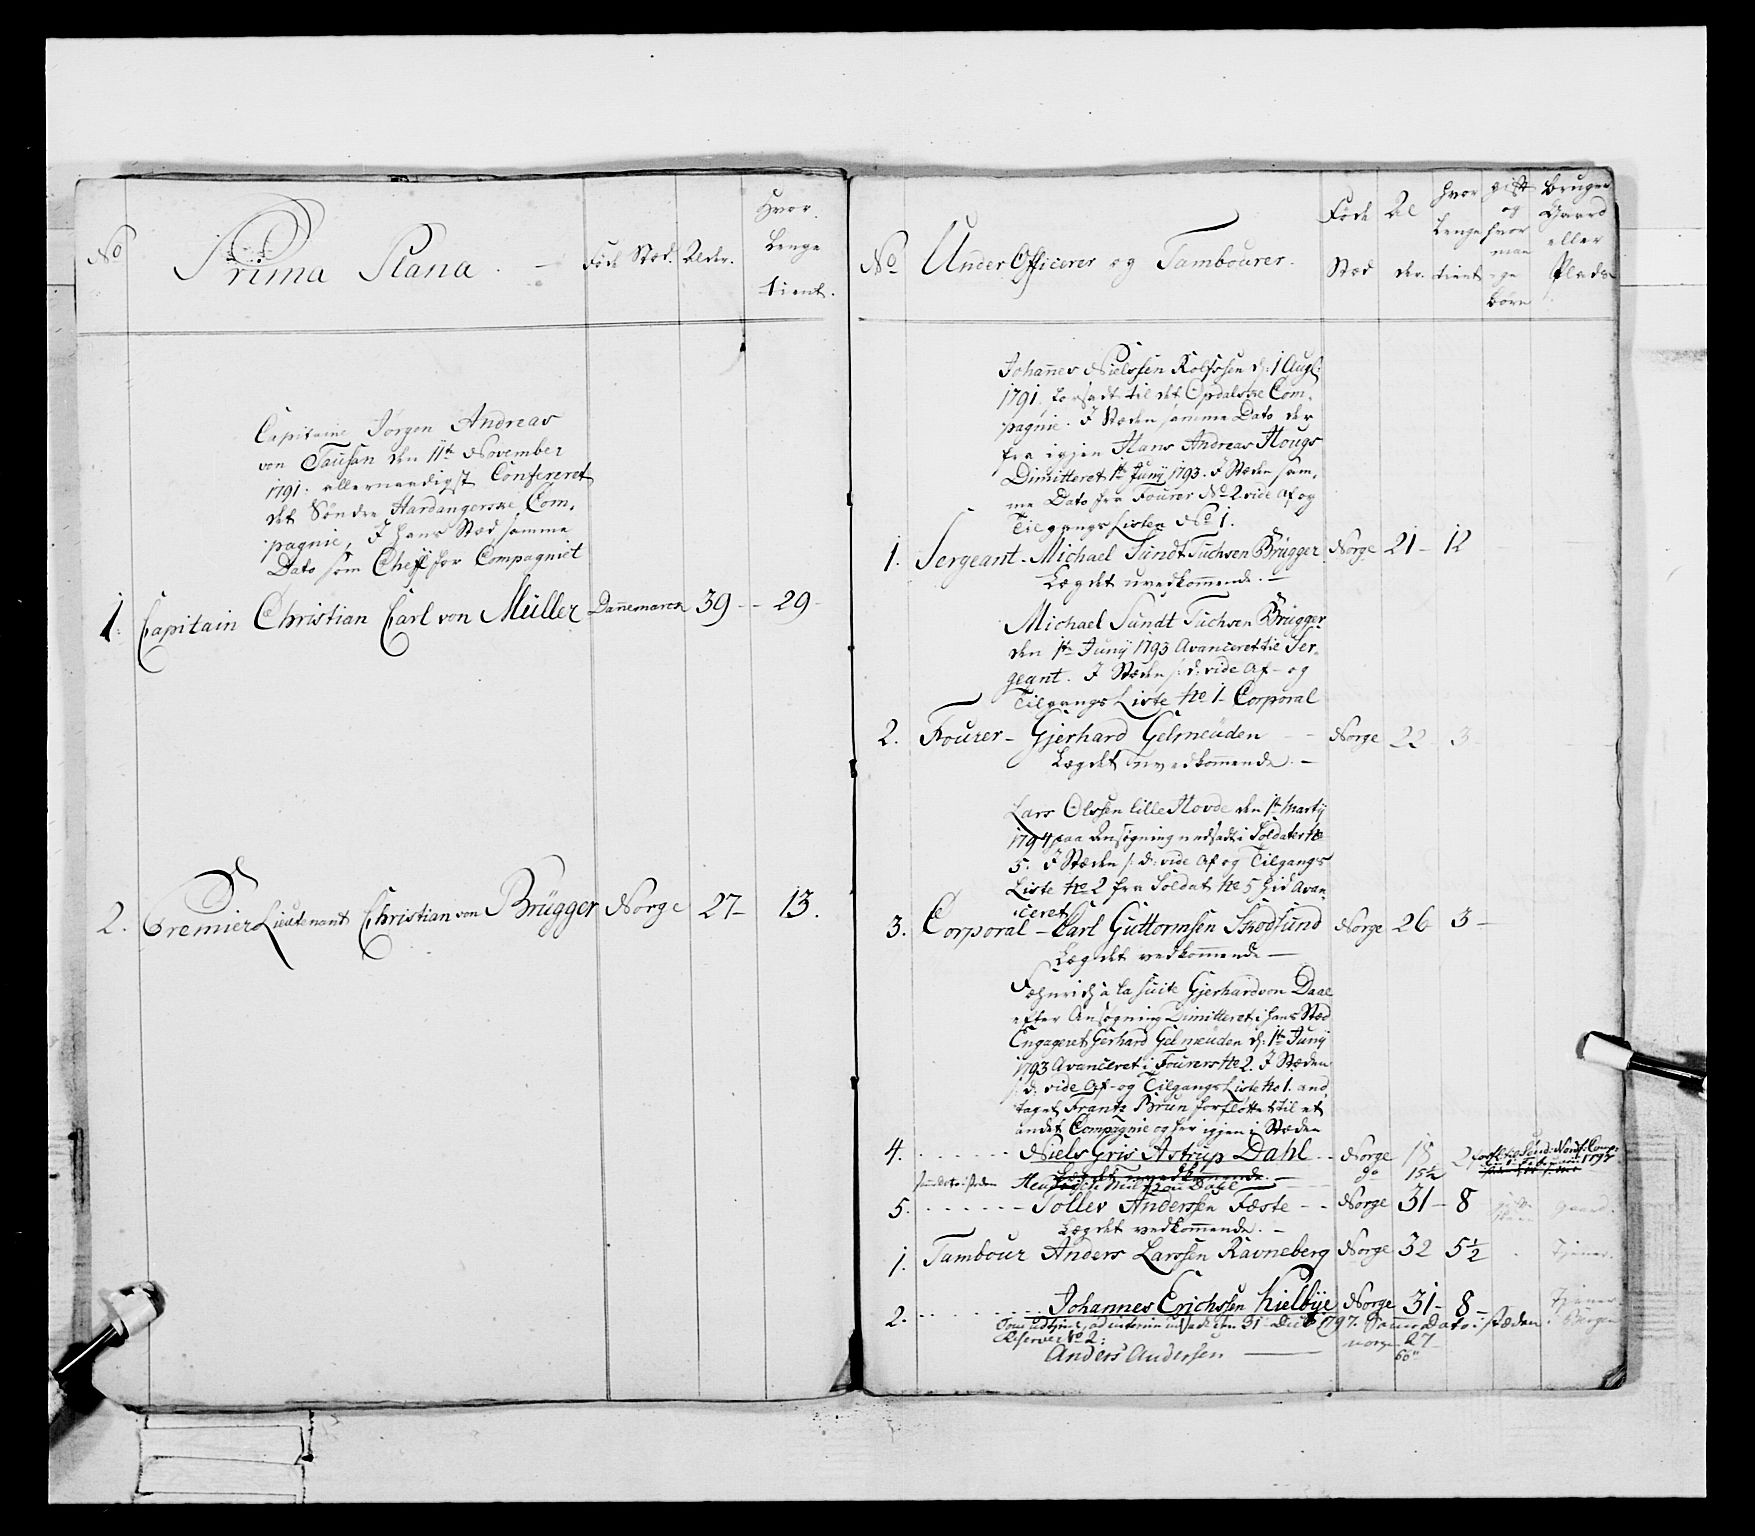 No
Prima Plana.
Føde Stæd.
Alder.
Hvor
Lenge
tient.
Capitaine Jörgen Andreas
von Tausan den 11te November
1791. allernaadigst Confereret
det Söndre Hardangerske Com-
pagnie, I hans Stæd samme
Dato som Chef for Compagniet
1. Capitain Christian Carl von Müller Dannemarck 39 - 29
2. Premier Lieutenant Christian von Brügger Norge 27 - 13.
No
Under Officerer og Tambourer.
Føde
Stæd
Al
der.
hvor
Lenge
tient
gift
og
hvor
man
ge
børn
bruger
Gaard
eller
Plads
Johannes Nielssen Rolfssen d: 1 Augt:
1791. forsadt til det Opdalske Com-
pagnie. I Stæden samme Dato der
fra igjen Hans Andreas Hougs
Dimitteret 1te Junij 1793. I Stæden sam-
me Dato fra Fourer No 2 vide Af og
Tilgangs Listen No 1.
1. Sergeant - Michael Sundt Tuchsen Brügger Norge 21 - 12
Lægdet uvedkommende. -
Michael Sundt Tuchsen Brügger
den 1te Junij 1793 Avanceret til Ser-
geant. I Stæden s: d: vide Af - og
Tilgangs Liste No 1 - Corporal
2. Fourer - Gjerhard Gelmeüden - - Norge 22 - 3 -
Lægdet uvedkommende. -
Lars Olssen Lille Hovde den 1te Martij
1794 paa Ansøgning nedsadt i Soldater No
5. I Stæden s: d: vide Af og Tilgangs
Liste No 2 fra Soldat No 5 hid Avan-
ceret
3. Corporal - Carl Guttormsen Skodsund Norge 26 3 -
Lægdet vedkommende -
Fæhnrich à la suite Gjerhard von Daae
efter Ansøgning Dimitteret i hans Stæd
Engageret Gerhard Gelmeüden d: 1te Junij
1793 Avanceret i Fourers No 2. I Stæden
s: d: vide Af - og Tilgangs Liste No 1. and
taget Frantz Brun forfløttet til et
andet Compagnie og her igjen i Stæden
4. Niels Gris Astrup Dahl - Norge 18 2
Lægdet uvedkommende. -
do 15 1/2
5. - Tollev Anderssen Fæste - - Norge 31 - 8 gaard.
Lægdet vedkommende. -
1. Tambour Anders Larssen Ravneberg Norge 32 5 1/2 Tjener.
2. Johannes Erichssen Kielbÿe Norge 31 - 8 - Tjener i Bergen
31 Decb 1797. Samme Dato i stæden
Reserve No 2:
Anders Andersen Norge 27
66"